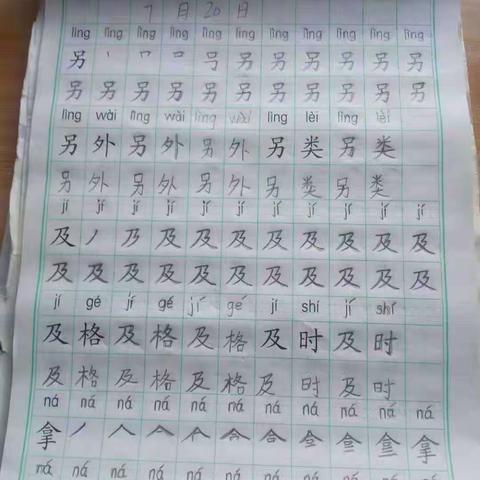 7月20日
lìng lìng lìng lìng lìng lìng lìng lìng lìng lìng lìng
另 丶 口 口 号 另 另 另 另 另 另
另 另 另 另 另 另 另 另 另 另 另
lìng wài lìng wài lìng wài lìng lèi lìng lèi
另 外 另 外 另 外 另 类 另 类
另 外 另 外 另 外 另 类 另 类
jí jí jí jí jí jí jí jí jí jí jí
及 丿 乃 及 及 及 及 及 及 及 及
及 及 及 及 及 及 及 及 及 及 及
jí gé jí gé jí gé jí shí jí shí
及 格 及 格 及 格 及 时 及 时
及 格 及 格 及 格 及 时 及 时
ná ná ná ná ná ná ná ná ná ná ná
拿 丿 人 亼 合 合 拿
ná ná ná ná ná ná ná ná ná ná ná